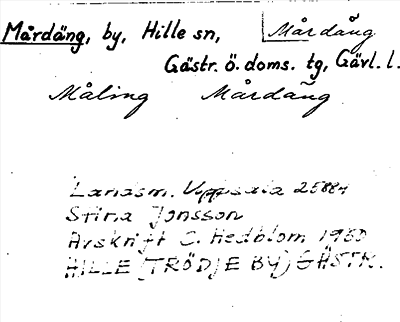 Mårdäng, by, Hille sn, Mårdäng
Gästr. ö. doms. tg, Gävl. l.
Måling Mårdäng
Landsm. Uppsala 25884
Stina Jonsson
Avskrift C. Hedblom 1950
HILLE (TRÖDJE BY) GÄSTR.